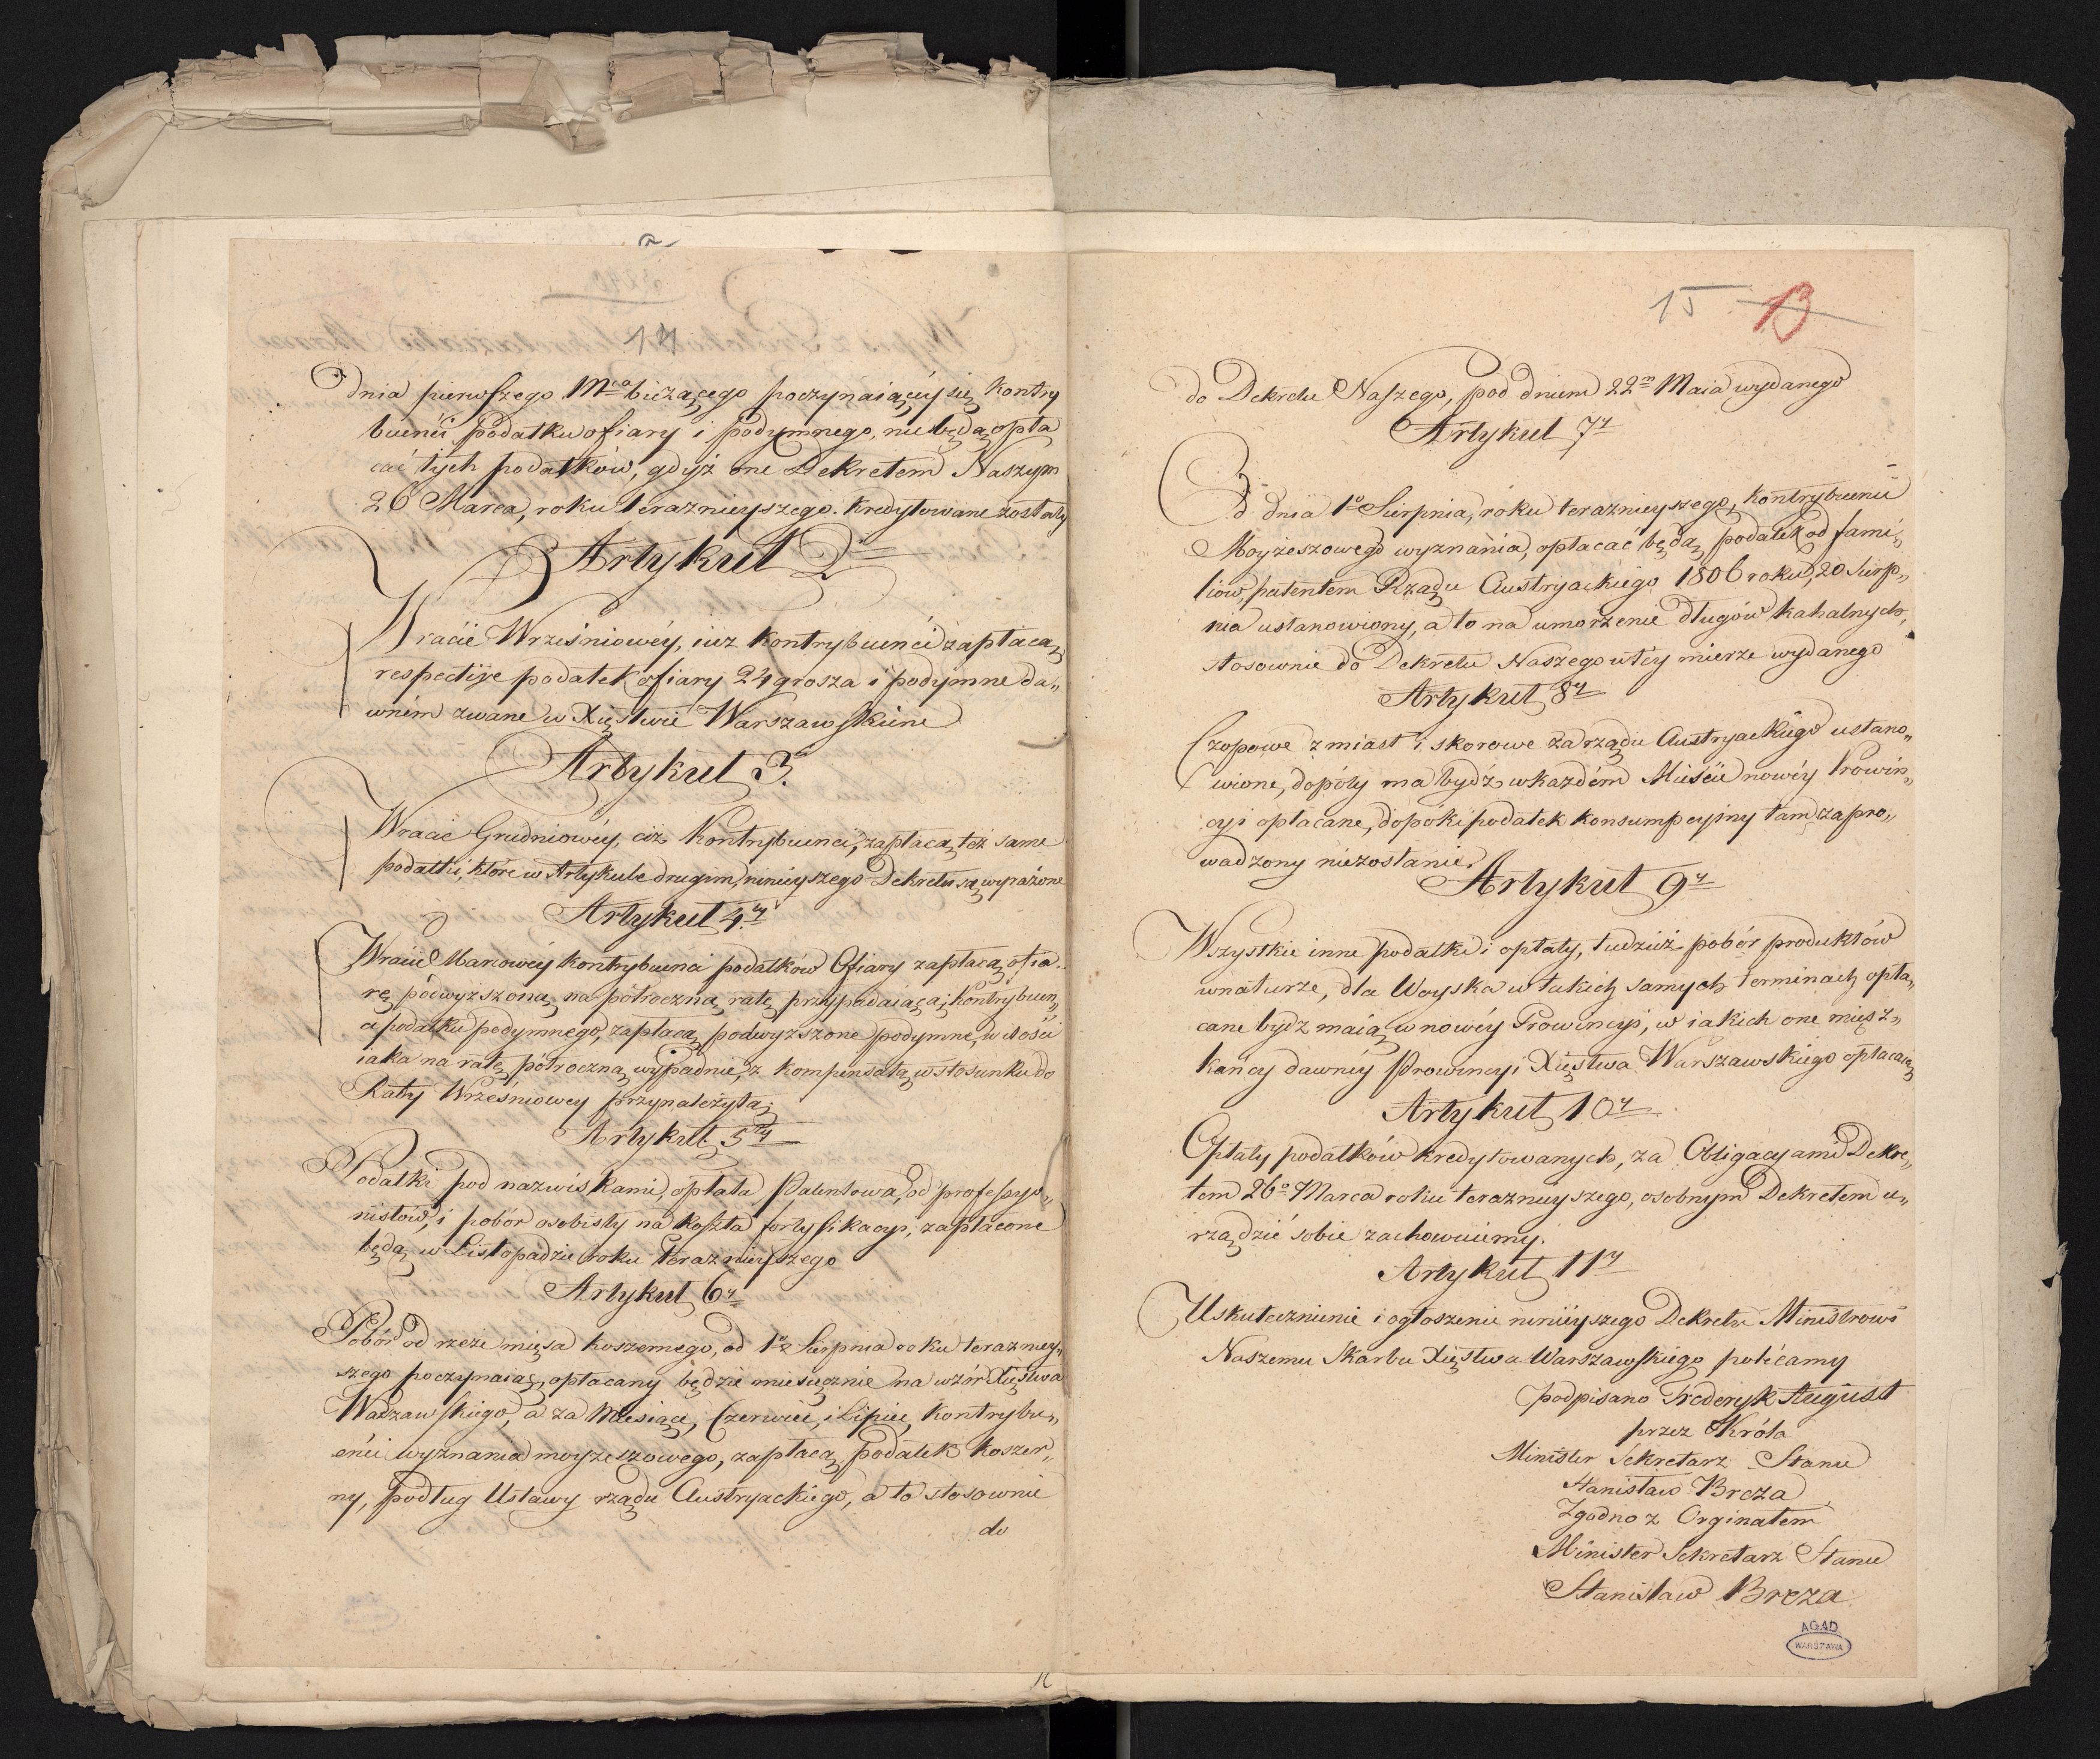 14
dnia pierwszego Mca bieżącego poczynaiącey się Kontry
buenci podatku ofiary i podymnego, nie będą opła
cać tych podatków, gdyż one Dekretem Naszym
26 Marca, roku teraznieyszego kredytowane zostały
Artykuł 2
W racie Wrześniowéy, iuż kontrybuenci zapłacą
respective podatek ofiary 24 grosza i podymne da„
wném zwane w Xięstwie Warszawskiém
Artykuł 3.
W racie Grudniowéy, ciż Kontrybuenci, zapłacą też same
podatki, które w Artykule drugim, ninieyszego Dekretu są wyrażone
Artykuł 4ty
W racie Marcowéy kontrybuenci podatków Ofiary zapłacą ofia„
rę podwyższoną na półroczną ratę przypadaiącą; kontrybuen„
ci podatku podymnego, zapłacą podwyższone podymne, w ilości
iaka na ratę półroczną wypadnie, z kompensatą w stosunku do
Raty Wrześniowey przynależytą;
Artykuł 5ty
Podatki pod nazwiskami, opłata Patentowa, od professyo„
nistów, i pobór osobisty na koszta fortyfikacyi, zapłacone
będą w Listopadzie roku teraznieyszego
Artykuł 6y
Pobór od rzezi mięsa koszernego, od 1o Sierpnia roku terazniey„
szego poczynaiąc, opłacany będzie miesięcznie na wzór Xięstwa
Warszawskiego, a za Miesiące, Czerwiec, i Lipiec, kontrybu„
enci wyznania moyżeszowego, zapłacą podatek koszer„
ny, podług Ustawy rządu Austryackiego, a to stosownie
do
15 13
do Dekretu Naszego, pod dniem 22m Maia wydanego
Artykuł 7y
Od dnia 1o Sierpnia, roku teraznieyszego, kontrybuenci
Moyżeszowego wyznania, opłacać będą podatek od fami„
liów, patentem Rządu Austryackiego 1806 roku, 20 Sierp„
nia ustanowiony, a to na umorzenie długów kahalnych,
stosownie do Dekretu Naszego w téy mierze wydanego
Artykuł 8y
Czopowe z miast i skorowe za rządu Austryackiego ustano„
wione, dopóty ma bydź w każdém Mieście nowéy Prowin„
cyi opłacane, dopóki podatek konsumpcyiny tam zapro„
wadzony niezostanie.
Artykuł 9y
Wszystkie inne podatki i opłaty, tudzież pobór produktów
w naturze, dla Woyska w takich samych terminach opła„
cane bydź maią w nowéy Prowincyi, w iakich one miesz„
kańcy dawnéy Prowincyi Xięstwa Warszawskiego opłacaią
Artykuł 10y
Opłaty podatków kredytowanych, za Obligacyami Dekre„
tem 26o Marca roku teraznieyszego, osobnym Dekretem u„
rządzić sobie zachowuiemy.
Artykuł 11y
Uskutecznienie i ogłoszenie ninieyszego Dekretu Ministrowi
Naszemu Skarbu Xięstwa Warszawskiego polécamy
podpisano Frederyk August
przez Króla
Minister Sekretarz Stanu
Stanisław Breza
Zgodno z Orginałem
Minister Sekretarz Stanu
Stanisław Breza
AGAD
WARSZAWA